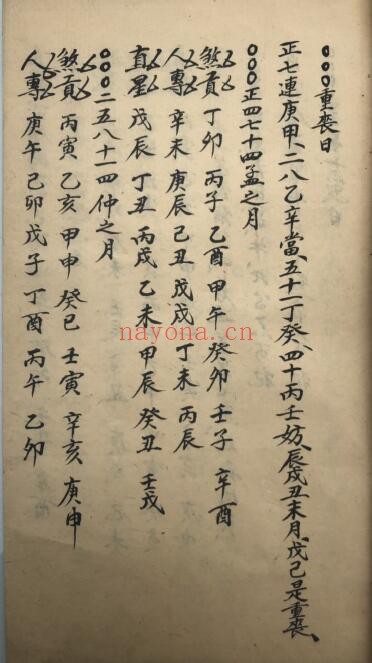 ○○○重喪日
正七連庚甲、二八乙辛當、五十一丁癸、四十丙壬妨、辰戌丑未月、戊己是重喪、
○○○正四七十四孟之月
煞貢 丁卯 丙子 乙酉 甲午 癸卯 壬子 辛酉
人專 辛未 庚辰 己丑 戊戌 丁未 丙辰
直星 戊辰 丁丑 丙戌 乙未 甲辰 癸丑 壬戌
○○○二五八十一四仲之月
煞貢 丙寅 乙亥 甲申 癸巳 壬寅 辛亥 庚申
人專 庚午 己卯 戊子 丁酉 丙午 乙卯
nayona.cn